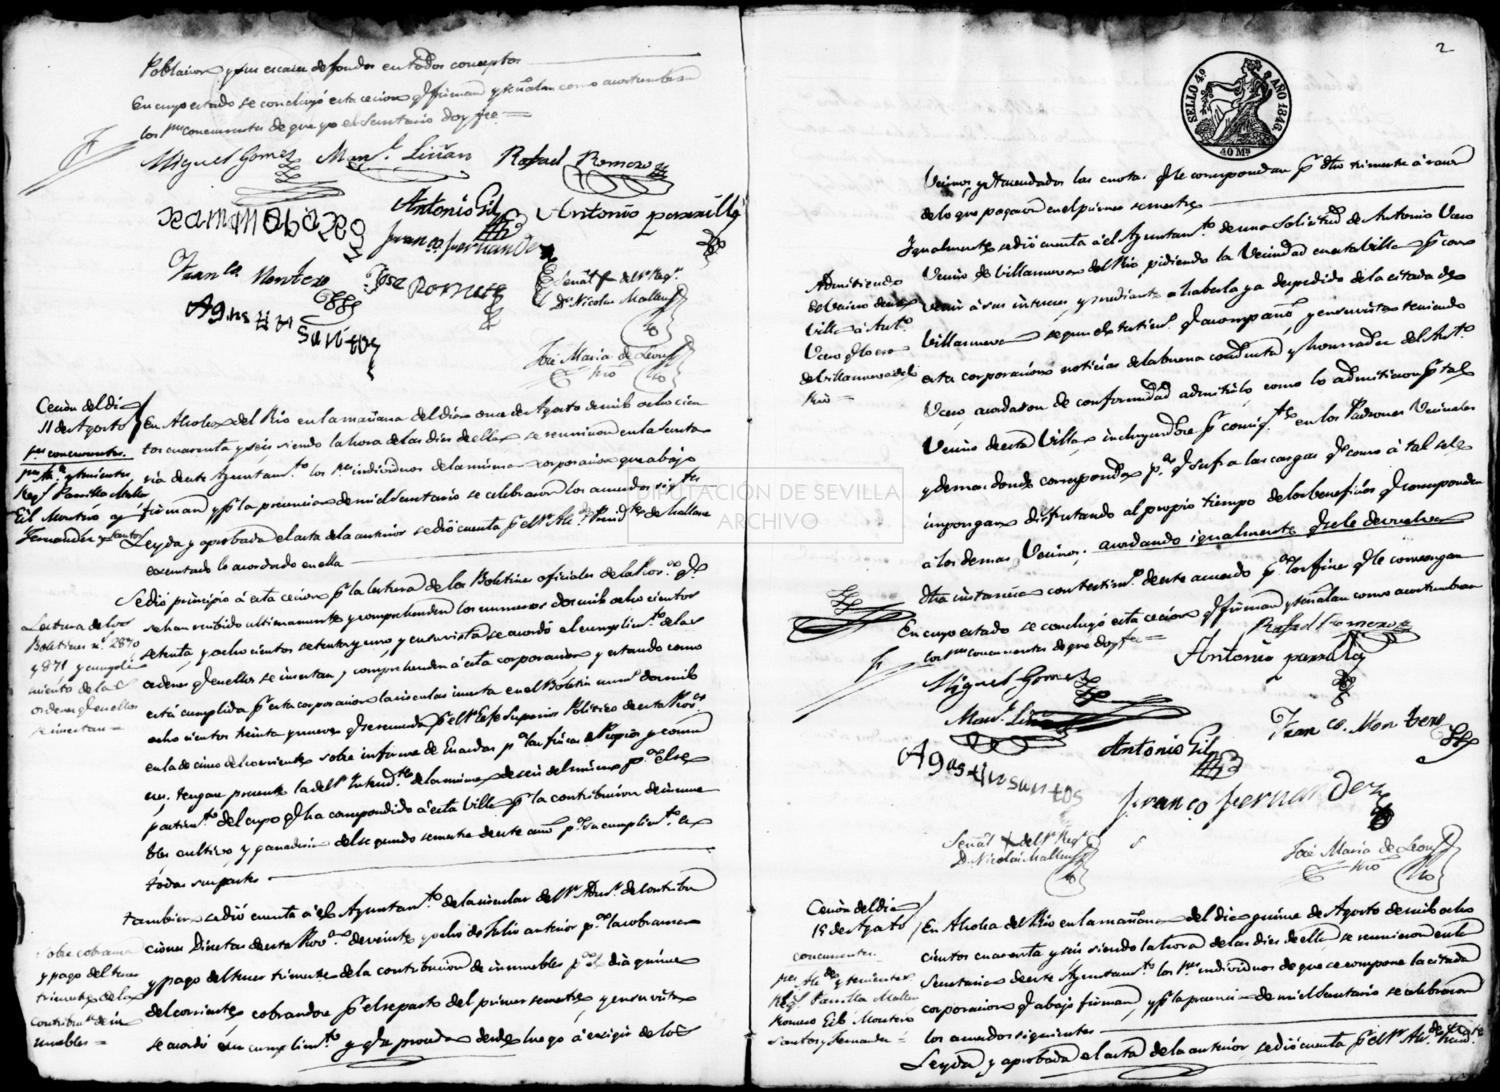 Poblacion y su escases de fondos en todos conceptos
En cuyo estado se concluyó esta cecion q.e firman y señalan como acostumbran
los S.res concurrentes de que yo el Secretario doy fee =
Miguel Gomez Man.l Liñan Rafael Romero
Antonio Gil Antonio parrilla
Franco. Fernandez
Fran.co Montero Jose Romero
Señal + del Sr. Reg.r
Dn. Nicolas Mallen
Agustin Santos
José Maria de Leon
Srio
Cecion del dia
11 de Agosto
S.res concurrentes.
pres.te y tenientes
Reg.s Parrilla Mallen
Gil Montero
Fernandez y Santos
En Alcolea del Rio en la mañana del dia once de Agosto de mil ocho cien
tos cuarenta y seis siendo la hora de las dies de ella se reunieron en la Secreta
ria de este Ayuntam.to los S.res individuos de la misma corporacion que abajo
firman y p.r la presencia de mi el Secretario se celebraron los acuerdos sig.tes
Leyda y aprobada el acta de la anterior se dió cuenta p.r el Sr. Alc.de Presid.te de hallarse
ejecutado lo acordado en ella
Lectura de los
Boletines n.s 2870
y 2871 y cumpli
miento de las
ordenes q.e en ellos
se insertan =
Se dió principio á esta cecion p.r la lectura de los Boletines oficiales de la Prov.a q.e
se han recibido ultimamente y comprehenden los numeros dos mil ocho cientos
setenta, y ocho cientos setenta y uno, y en su vista se acordó el cumplim.to de las
ordenes q.e en ellos se insertan y comprehenden á esta corporacion, y estando como
está cumplida p.r esta corporacion la circular inserta en el Boletin num.o dos mil
ocho cientos treinta y nueve q.e recuerda p.r el Sr. Gefe Superior Politico de esta Prov.a
en la de cinco del corriente sobre informe de Guardas p.a las fincas de Propios y comun
es, tengase presente la del Sr. Intend.te de la misma de seis del mismo p.a el re
partim.to del cupo q.e ha correspondido á esta Villa p.r la contribucion de inmue
bles, cultivo, y ganaderia del segundo semestre de este año, p.a su cumplim.to en
todas sus partes
Sobre cobranza
y pago del tercer
trimestre de la
contribu.on de in
muebles =
Tambien se dió cuenta á el Ayuntam.to de la circular del Sr. Adm.r de Contribu
ciones Directas de esta Prov.a de veinte y ocho de Julio anterior p.a la cobranza
y pago del tercer trimestre de la contribucion de inmuebles p.a el dia quince
del corriente cobrandose p.r el reparto del primer semestre, y en su vista
se acordó su cumplim.to y q.e se proceda desde luego á exigir de los
2
SELLO 4.º AÑO 1846
40 Ms
Vecinos y Hacendados las cuotas q.e le correspondan p.r dho trimestre á razon
de lo que pagaron en el primer semestre
Admitiendo
de Vecino de esta
Villa á Ant.o
Vero q.e lo era
de Villanueva del
Rio =
Igualmente se dió cuenta á el Ayuntam.to de una solicitud de Antonio Vero
Vecino de Villanueva del Rio pidiendo la Vecindad en esta Villa p.r con
venir á sus intereses, y mediante á haberla ya despedido de la citada de
Villanueva segun el testim.o q.e acompaño, y en su vista teniendo
esta corporacion noticias de la buena conducta y honradez del Ant.o
Vero, acordaron de conformidad admitirlo como lo admitieron p.r tal
Vecino de esta Villa, incluyendose p.r consig.te en los Padrones Vecinales
y demas donde corresponda p.a q.e sufra las cargas q.e como á tal se le
impongan disfrutando al propio tiempo de los beneficios q.e corresponden
a los demas Vecinos; acordando igualmente q.e se le devuelva
dha instancia con testim.o de este acuerdo p.a los fines q.e le convengan
En cuyo estado se concluyó esta cecion q.e firman y señalan como acostumbran
los S.res concurrentes de que doy fee =
Rafael Romero
Antonio parrilla
Miguel Gomez
Man.l Liñan
Antonio Gil Fran co. Montero
Agustin Santos
Franco. Fernandez
Señal + del Sr. Reg.r
D. Nicolas Mallen
José Maria de Leon
Srio
Cecion del dia
15 de Agosto
concurrentes.
S.res Alc.de y tenientes
Reg.s Parrilla Mallen
Romero Gil Montero
Santos y Fernandez =
En Alcolea del Rio en la mañana del dia quince de Agosto de mil ocho
cientos cuarenta y seis siendo la hora de las dies de ella se reunieron en la
Secretaria de este Ayuntam.to los S.res individuos de que se compone la citada
corporacion q.e abajo firman, y p.r la presencia de mi el Secretario se celebraron
los acuerdos siguientes
Leyda y aprobada el acta de la anterior, se dió cuenta p.r el Sr. Alc.de Presid.te
DIPUTACIÓN DE SEVILLA
ARCHIVO